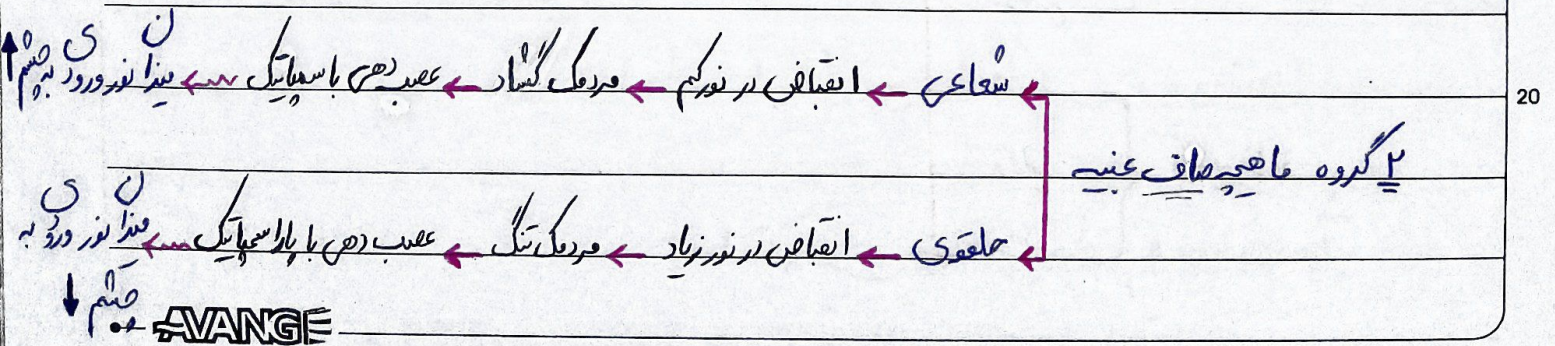 ۲ گروه ماهیچه صاف عنبیه
شعاعی ← انقباض در نور کم ← مردمک گشاد ← عصب دهی با سمپاتیک ← میزان نور ورودی به چشم ↑
حلقوی ← انقباض در نور زیاد ← مردمک تنگ ← عصب دهی با پاراسمپاتیک ← میزان نور ورودی به چشم ↓
20
AVANGE